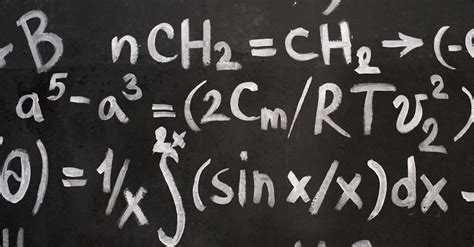 B nCH₂ = CH₂ → (-C
a⁵ - a³ = (2Cm/RTv₂²)
θ) = 1/x ∫²ˣ (sin x/x)dx -